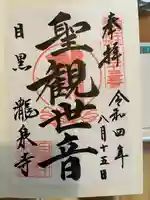 奉拝
令和四年
八月十五日
聖観世音
目黒
瀧泉寺